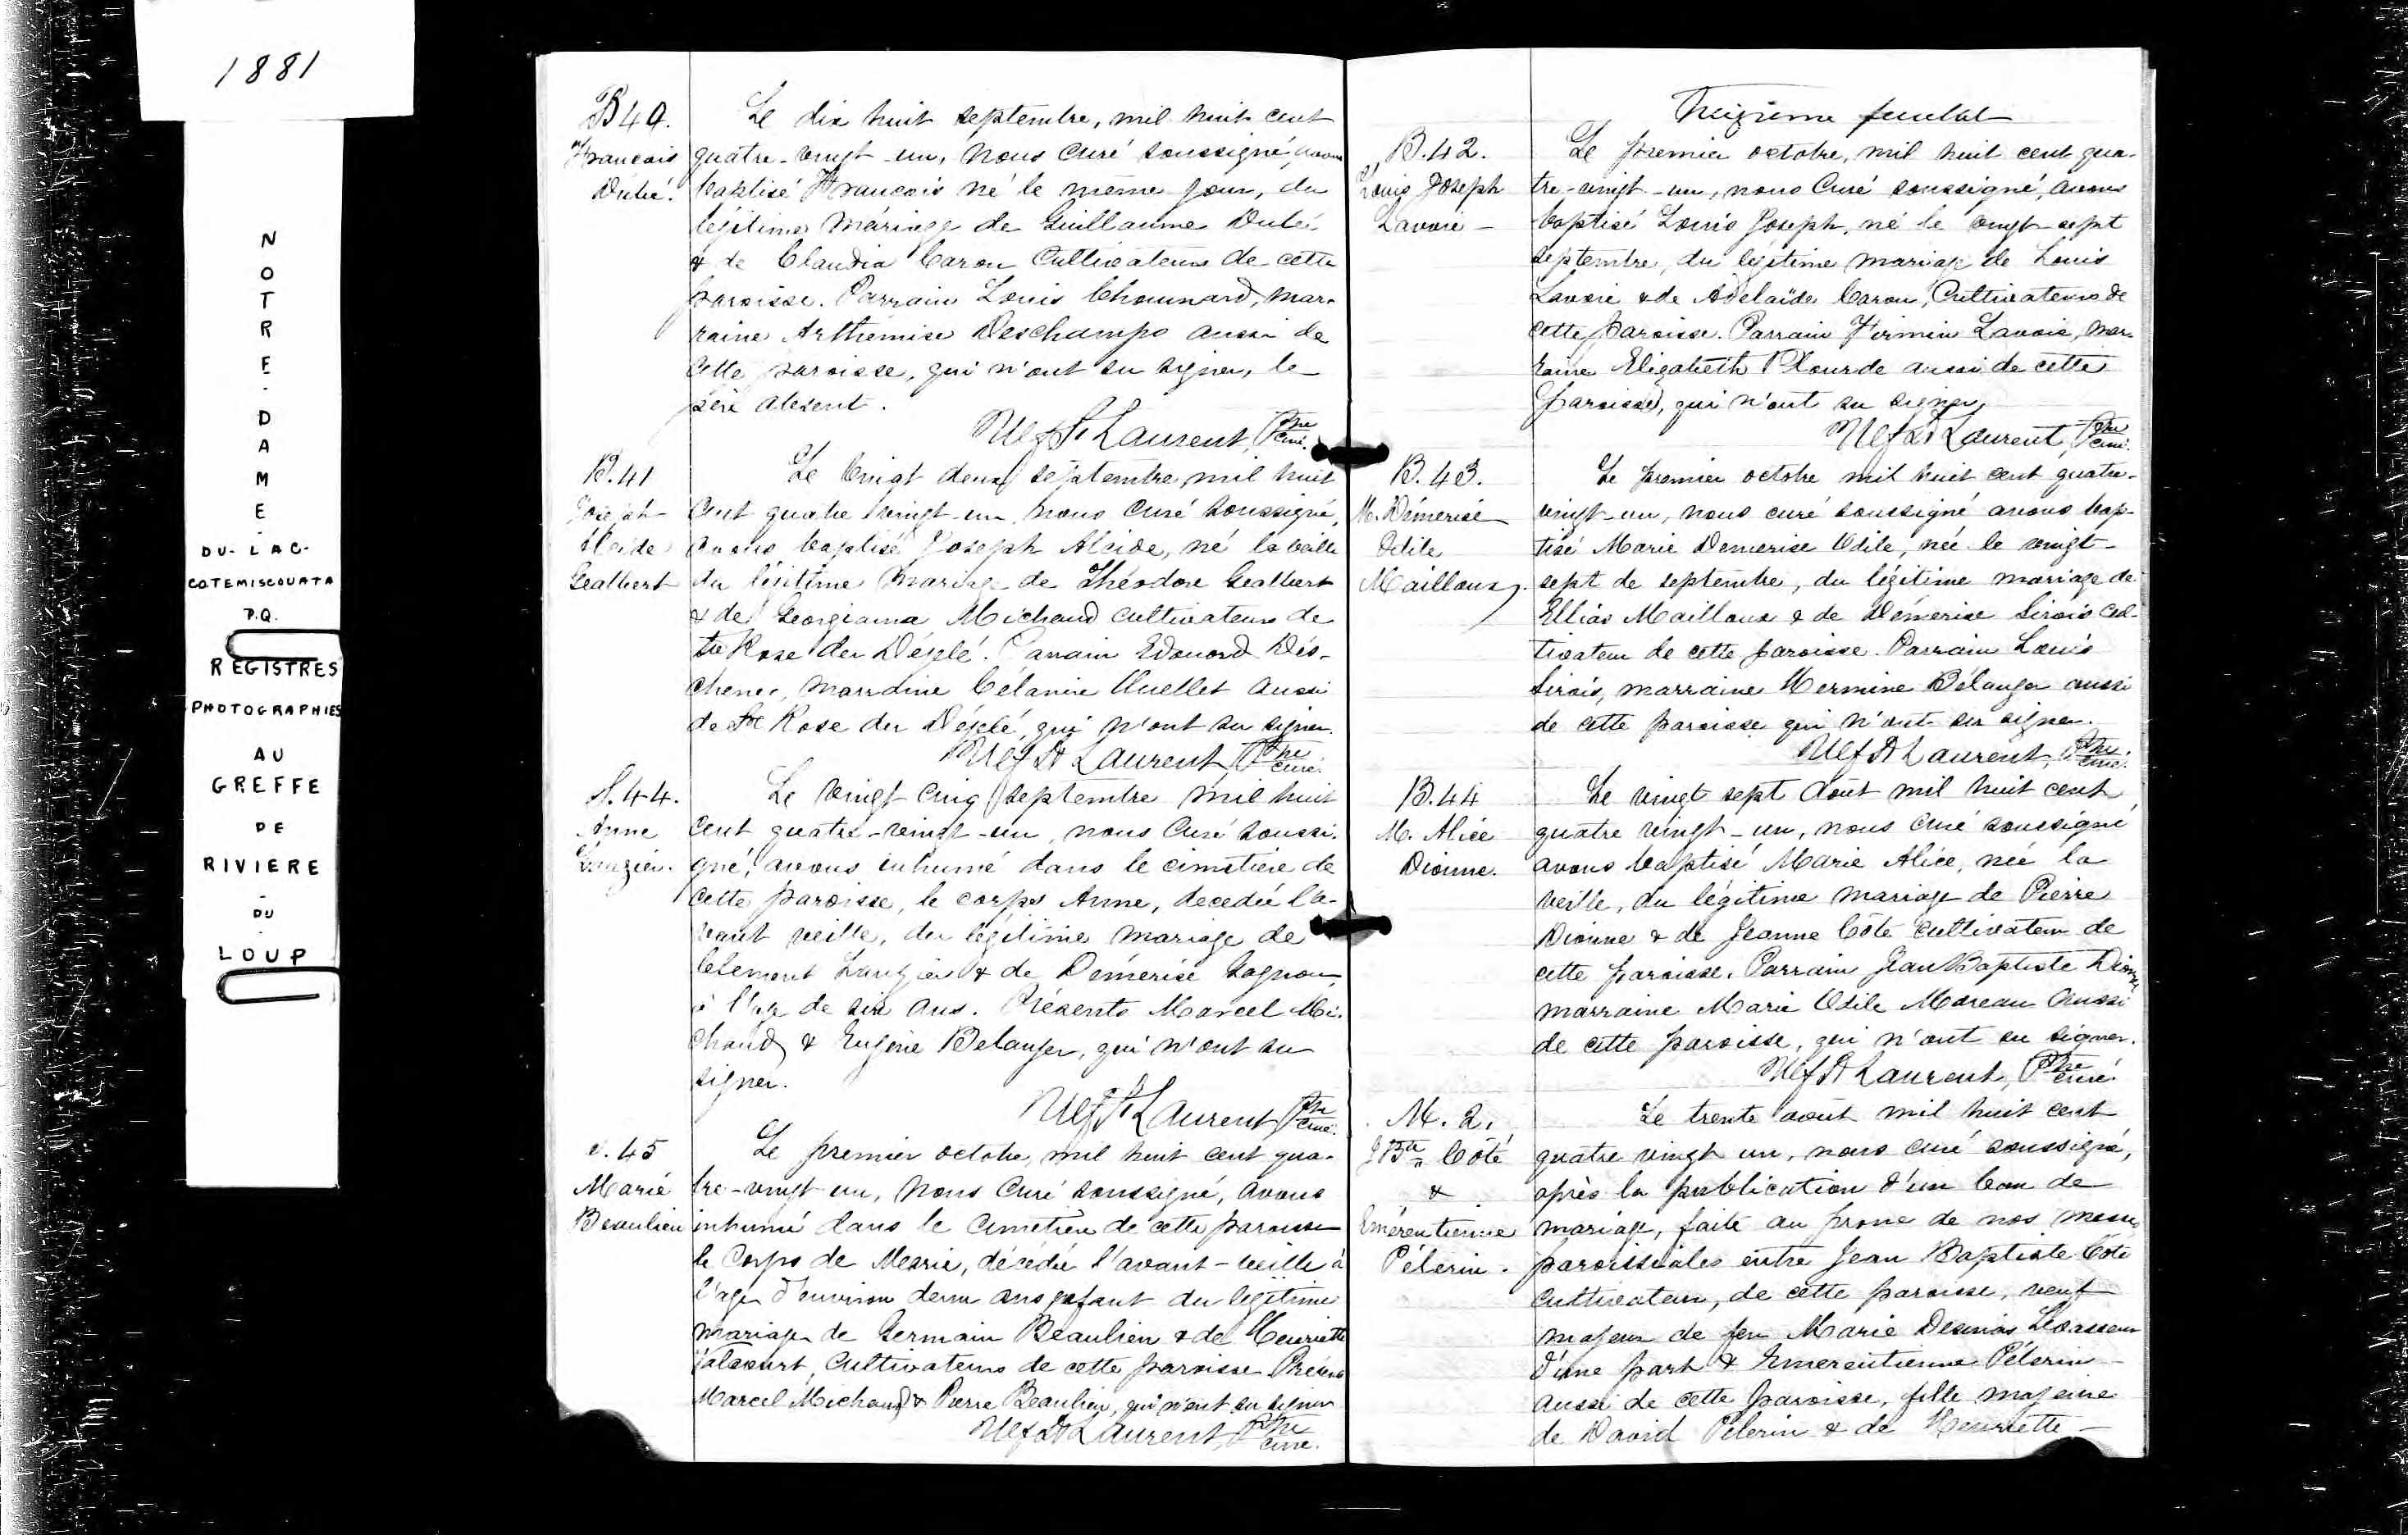 1881
NOTRE-DAME-
DU-LAC-
COTEMISCOUATA
P.Q.
REGISTRES
PHOTOGRAPHIES
AU
GREFFE
DE
RIVIERE
-
DU
-
LOUP
B 40.
Francois
Dubé.
Le dix huit septembre, mil huit cent
quatre-vingt-un, nous curé soussigné, avons
baptisé Francois né le même jour, du
légitime mariage de Guillaume Dubé
& de Claudia Caron Cultivateurs de cette
paroisse. Parrain Louis Chouinard, mar-
raine Arthémise Deschamps aussi de
cette paroisse, qui n'ont su signer, le
père absent.
Ulf St Laurent, Ptre curé.
B. 41
Joseph
Alcide
Gealbert
Le vingt deux septembre, mil huit
cent quatre vingt-un, nous curé soussigné,
avons baptisé Joseph Alcide, né la veille
du légitime mariage de Théodore Gealbert
& de Georgiana Michaud cultivateurs de
Ste Rose du Dégelé. Parrain Edouard Dés-
chenes, marraine Célanire Ouellet aussi
de Ste Rose du Dégelé, qui n'ont su signer.
Ulf St Laurent, Ptre curé.
S. 44.
Anne
Le vingt cinq septembre mil huit
cent quatre-vingt-un, nous Curé soussi-
gné, avons inhumé dans le cimetière de
cette paroisse, le corps Anne, decedée l'a-
vant veille, du légitime mariage de
Clement & de Démerise Gagnon,
à l'age de six ans. Présents Marcel Mi-
chaud & Eugène Belanger, qui n'ont su
signer.
Ulf St Laurent Ptre curé.
S. 45
Marie
Beaulieu
Le premier octobre, mil huit cent qua-
tre-vingt-un, Nous Curé soussigné, avons
inhumé dans le cimetière de cette paroisse
le Corps de Marie, décédée l'avant-veille à
l'age d'environ deux ans enfant du légitime
mariage de Germain Beaulieu & de Henriette
Jalbert, Cultivateurs de cette paroisse. Présents
Marcel Michaud & Pierre Beaulieu, qui n'ont su signer
Ulf St Laurent, Ptre curé.
feuillet
B. 42.
Louis Joseph
Lavoie -
Le premier octobre, mil huit cent qua-
tre-vingt-un, nous Curé soussigné, avons
baptisé Louis Joseph, né le vingt-sept
septembre, du légitime mariage de Louis
Lavoie & de Adelaïde Caron, Cultivateurs de
cette paroisse. Parrain Firmin Lavoie, mar-
raine Elizabeth Plourde aussi de cette
paroisse, qui n'ont su signer,
Ulf St Laurent, Ptre curé.
B. 43.
M. Démerise
Odile
Mailloux.
Le premier octobre mil huit cent quatre-
vingt-un, nous curé soussigné avons bap-
tisé Marie Demerise Odile, née le vingt-
sept de septembre, du légitime mariage de
Ellias Mailloux & de Démerise Sirois Cul-
tivateur de cette paroisse. Parrain Louis
Sirois, marraine Hermine Bélanger aussi
de cette paroisse qui n'ont su signer.
Ulf St Laurent, Ptre curé.
B. 44
M. Alice
Dionne.
Le vingt sept Août mil huit cent
quatre vingt-un, nous Curé soussigné
avons baptisé Marie Alice, née la
veille, du légitime mariage de Pierre
Dionne & de Jeanne Côté cultivateur de
cette paroisse. Parrain Jean Baptiste Dionne
marraine Marie Odile Moreau aussi
de cette paroisse, qui n'ont su signer.
Ulf St Laurent, Ptre curé.
M. 2.
J Bte Côté
&
Emérentienne
Pélerin.
Le trente août mil huit cent
quatre vingt un, nous curé soussigné,
après la publication d'un ban de
mariage, faite au prone de nos messes
paroissiales entre Jean Baptiste Côté
cultivateur, de cette paroisse, veuf
majeur de feu Marie Levasseur
d'une part & Emerentienne Pélerin
aussi de cette paroisse, fille majeure
de David Pelerin & de Henriette -